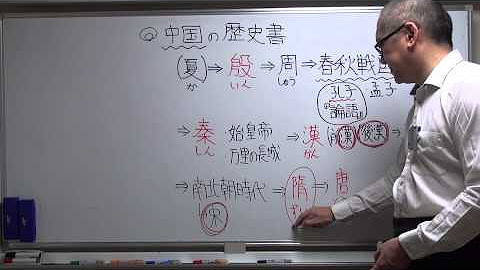 中国の歴史書
(夏)⇒殷⇒周⇒春秋戦国
か いん しゅう 孔子 孟子
『論語』
⇒秦 始皇帝 ⇒漢(前漢)(後漢)⇒
しん 万里の長城 かん
⇒南北朝時代⇒隋⇒唐
宋 ずい